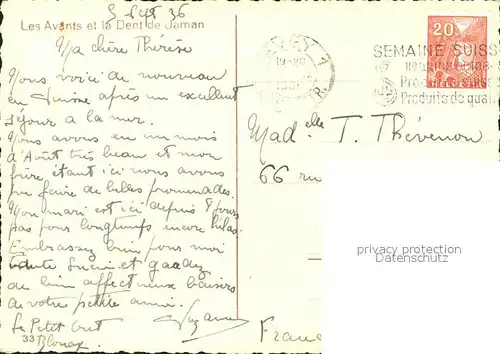 3 Sept 36
Les Avants et la Dent de Jaman
Ma chère Thérèse
Nous voici de nouveau
en Suisse après un excellent
séjour à la mer.
Nous avons eu un mois
d'Août très beau et mon
frère étant ici nous avons
pu faire de belles promenades.
Mon mari est ici depuis 8 jours
pas pour longtemps encore hélas.
Embrassez bien pour moi
toute et gardez
de bien affectueux baisers
de votre petite amie.
Suzanne
Le Petit Cret
33 Blonay
20
SEMAINE SUISS
Produits de qual
Mad elle T. Thévenon
66 ru
privacy protection
Datenschutz
Franc